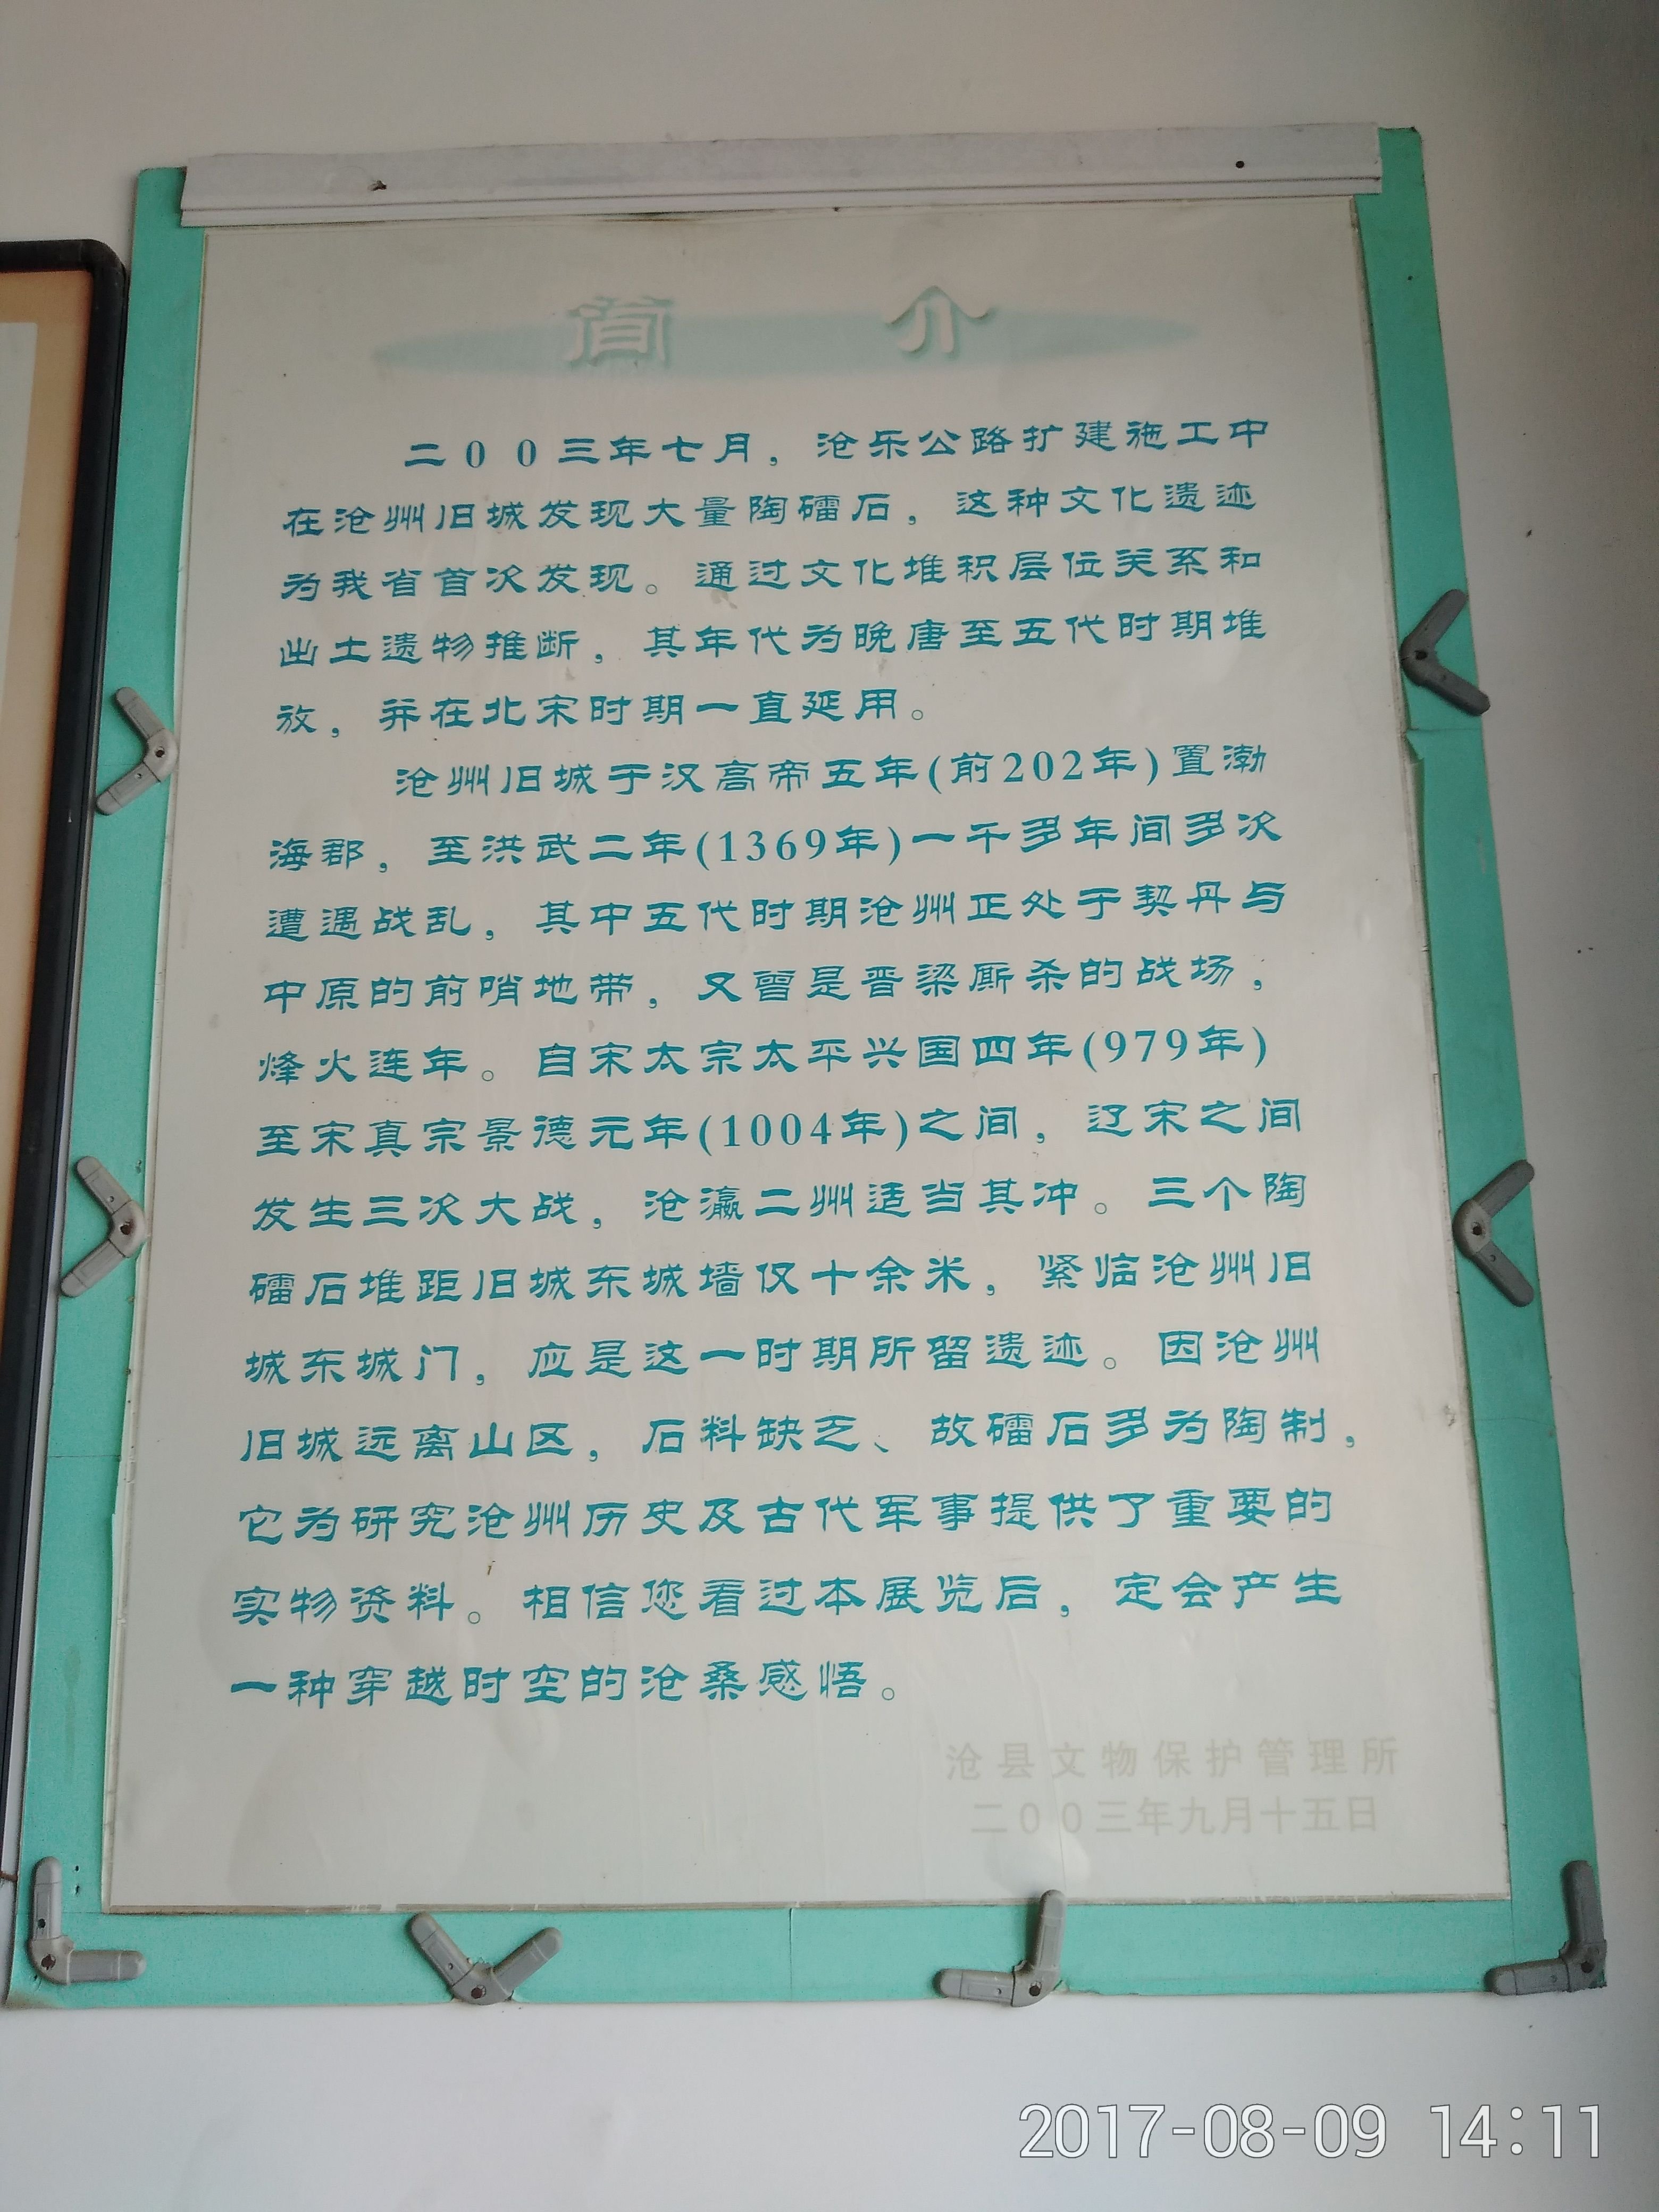 简 介
二00三年七月，沧乐公路扩建施工中
在沧州旧城发现大量陶礌石，这种文化遗迹
为我省首次发现。通过文化堆积层位关系和
出土遗物推断，其年代为晚唐至五代时期堆
放，并在北宋时期一直延用。
沧州旧城于汉高帝五年(前202年)置渤
海郡，至洪武二年(1369年)一千多年间多次
遭遇战乱，其中五代时期沧州正处于契丹与
中原的前哨地带，又曾是晋梁厮杀的战场，
烽火连年。自宋太宗太平兴国四年(979年)
至宋真宗景德元年(1004年)之间，辽宋之间
发生三次大战，沧瀛二州适当其冲。三个陶
礌石堆距旧城东城墙仅十余米，紧临沧州旧
城东城门，应是这一时期所留遗迹。因沧州
旧城远离山区，石料缺乏、故礌石多为陶制，
它为研究沧州历史及古代军事提供了重要的
实物资料。相信您看过本展览后，定会产生
一种穿越时空的沧桑感悟。
沧县文物保护管理所
二00三年九月十五日
2017-08-09 14:11